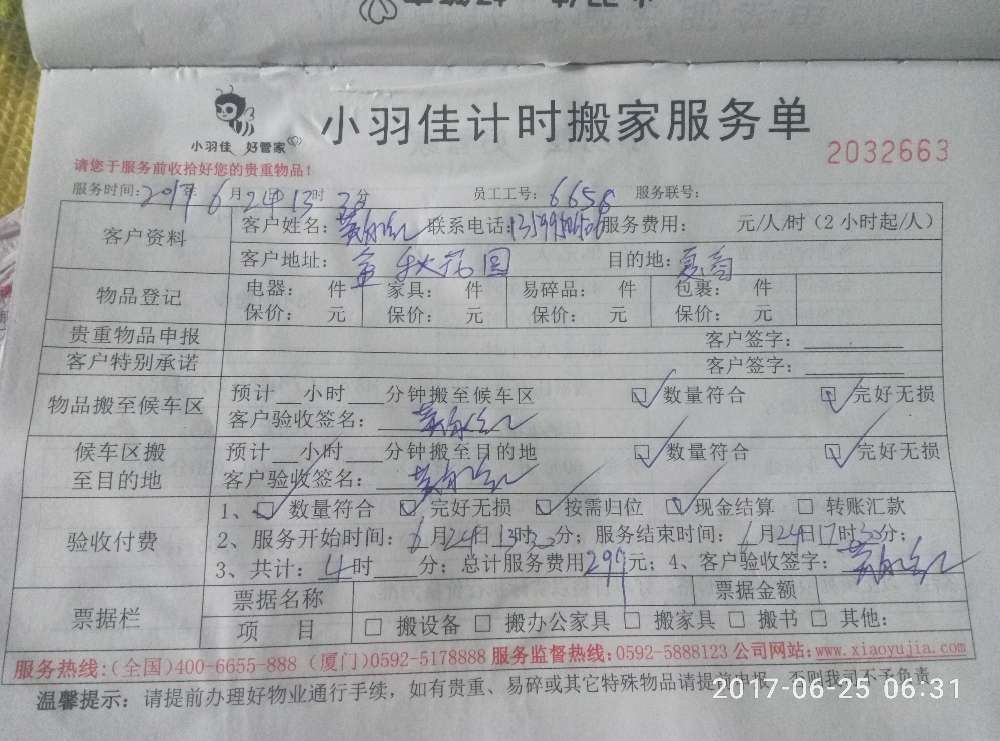 小羽佳 好管家
小羽佳计时搬家服务单
2032663
请您于服务前收拾好您的贵重物品！
服务时间：2017年6月24日13时30分 员工工号：6658 服务联号：
客户资料 客户姓名： 联系电话： 服务费用： 元/人/时（2小时起/人）
客户地址：金秋花园 目的地：夏商
物品登记 电器： 件 家具： 件 易碎品： 件 包裹： 件
保价： 元 保价： 元 保价： 元 保价： 元
贵重物品申报 客户签字：
客户特别承诺 客户签字：
物品搬至候车区 预计__小时___分钟搬至候车区 ☑数量符合 ☑完好无损
客户验收签名：
候车区搬至目的地 预计__小时___分钟搬至目的地 ☑数量符合 ☑完好无损
客户验收签名：
验收付费 1、☑数量符合 ☑完好无损 ☑按需归位 ☑现金结算 □转账汇款
2、服务开始时间：6月24日13时30分；服务结束时间：6月24日17时30分；
3、共计：4时___分；总计服务费用299元；4、客户验收签字：
票据栏 票据名称 票据金额
项 目 □搬设备 □搬办公家具 □搬家具 □搬书 □其他：
服务热线：（全国）400-6655-888（厦门）0592-5178888 服务监督热线：0592-5888123 公司网站：www.xiaoyujia.com
温馨提示：请提前办理好物业通行手续，如有贵重、易碎或其它特殊物品请提前申报，否则我司不予负责
2017-06-25 06:31